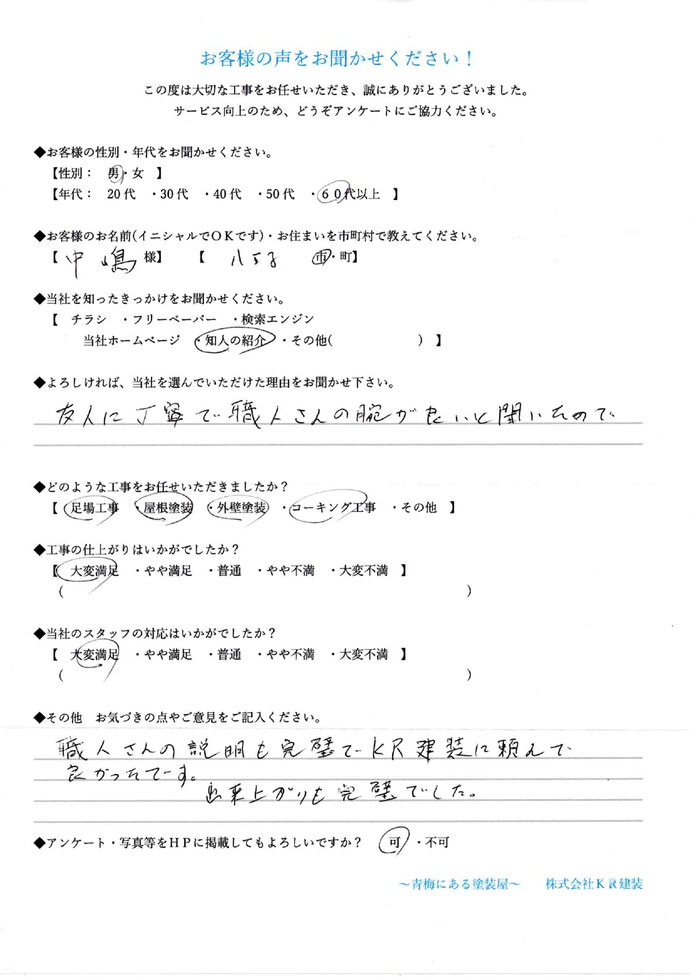 お客様の声をお聞かせください！
この度は大切な工事をお任せいただき、誠にありがとうございました。
サービス向上のため、どうぞアンケートにご協力ください。
◆お客様の性別・年代をお聞かせください。
【性別： 男・女 】
【年代： 20代 ・30代 ・40代 ・50代 ・60代以上 】
◆お客様のお名前(イニシャルでＯＫです)・お住まいを市町村で教えてください。
【 中嶋 様】 【 八王子 市・町】
◆当社を知ったきっかけをお聞かせください。
【 チラシ ・フリーペーパー ・検索エンジン
当社ホームページ ・知人の紹介 ・その他( ) 】
◆よろしければ、当社を選んでいただけた理由をお聞かせ下さい。
友人に丁寧で職人さんの腕が良いと聞いたので
◆どのような工事をお任せいただきましたか？
【 足場工事 ・屋根塗装 ・外壁塗装 ・コーキング工事 ・その他 】
◆工事の仕上がりはいかがでしたか？
【 大変満足 ・やや満足 ・普通 ・やや不満 ・大変不満 】
( )
◆当社のスタッフの対応はいかがでしたか？
【 大変満足 ・やや満足 ・普通 ・やや不満 ・大変不満 】
( )
◆その他 お気づきの点やご意見をご記入ください。
職人さんの説明も完璧でKR建装に頼んで
良かったです。
出来上がりも完璧でした。
◆アンケート・写真等をＨＰに掲載してもよろしいですか？ 可 ・不可
～青梅にある塗装屋～ 株式会社ＫＲ建装